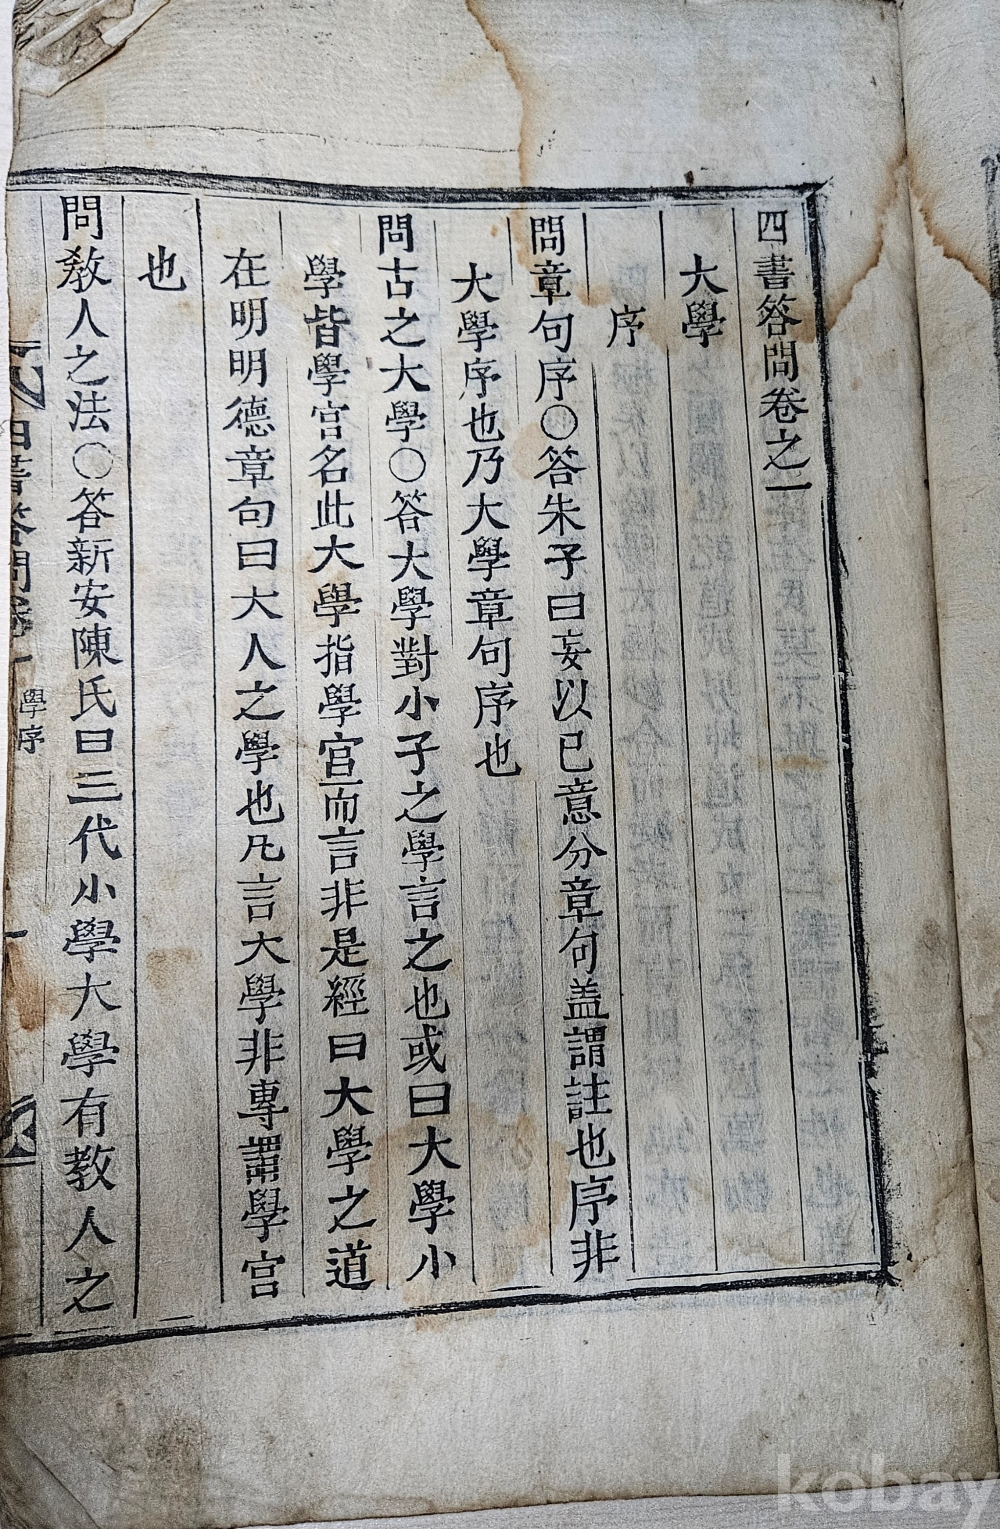 四書答問卷之一
大學
序
問章句序○答朱子曰妄以已意分章句盖謂註也序非
大學序也乃大學章句序也
問古之大學○答大學對小子之學言之也或曰大學小
學皆學宮名此大學指學宮而言非是經曰大學之道
在明明德章句曰大人之學也凡言大學非專謂學宮
也
問敎人之法○答新安陳氏曰三代小學大學有教人之
四書答問卷一
學序
一
kobay